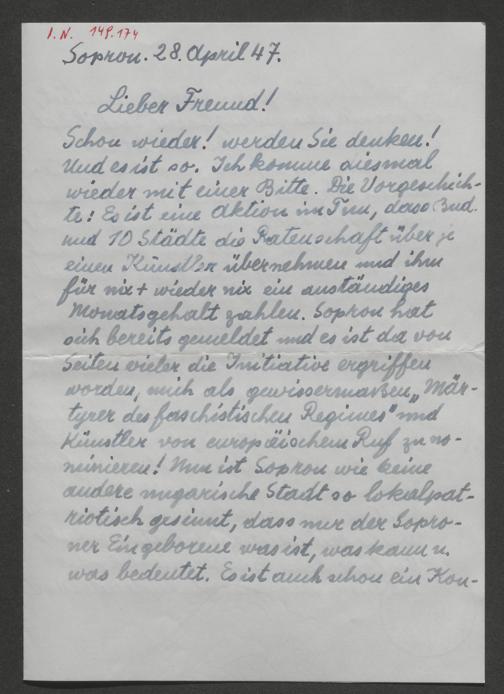 I.N. 149.174
Sopron. 28. April 47.
Lieber Freund!
Schon wieder! werden Sie denken!
Und es ist so. Ich komme diesmal
wieder mit einer Bitte. Die Vorgeschich-
te: Es ist eine Aktion im Tun, dass Bud.
und 10 Städte die Patenschaft über je
einen Künstler übernehmen und ihm
für nix + wieder nix ein anständiges
Monatsgehalt zahlen. Sopron hat
sich bereits gemeldet und es ist da von
Seiten vieler die Initiative ergriffen
worden, mich als gewissermaßen „Mär-
tyrer des faschistischen Regimes" und
Künstler von europäischem Ruf zu no-
minieren! Nun ist Sopron wie keine
andere ungarische Stadt so lokalpat-
riotisch gesinnt, dass nur der Sopro-
ner Eingeborene was ist, was kann u.
was bedeutet. Es ist auch schon ein Kon-